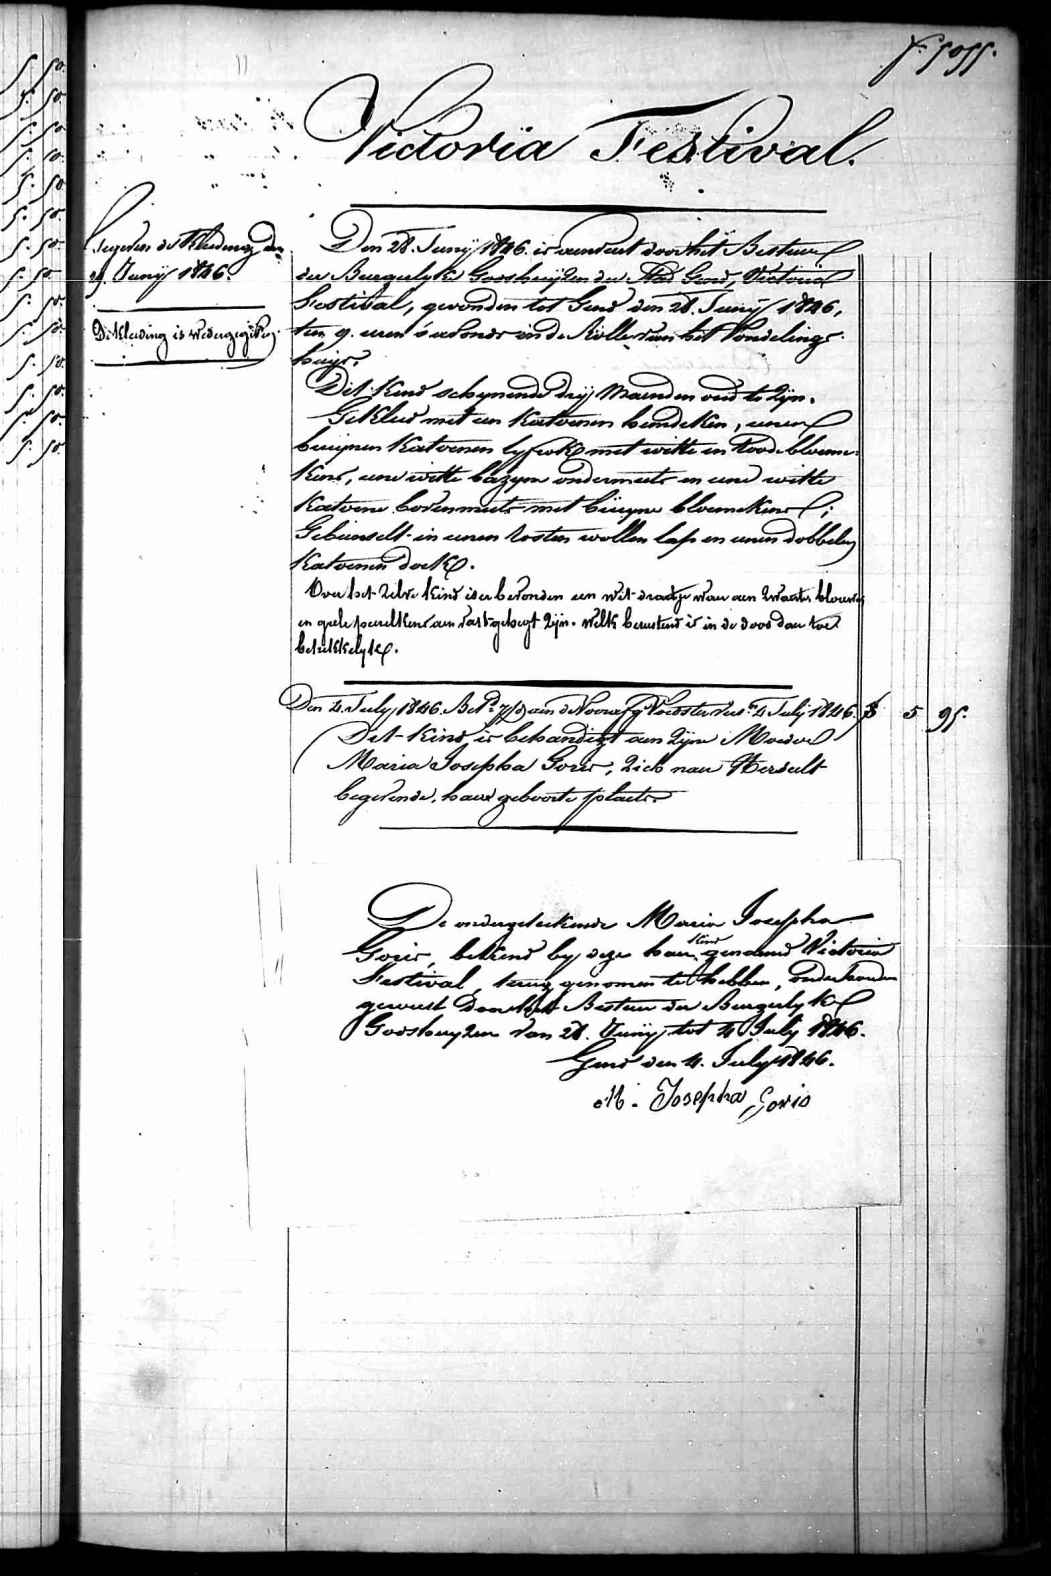 f° 5955.
Victoria Festival.
Gegeven de Kleeding den
29. Junij 1846.
De Kleeding is wedergegeven
Den 28. Junij 1846. is aenveert door het Bestuur
der Burgerlyke Godshuijzen der Stad Gend, Victoria
Festival, gevonden tot Gend den 28. Junij 1846,
ten 9. uren s'avonds in de Rolle van het Vondelings-
huijs.
Dit Kind schynende drij Maenden oud te zijn.
Gekleed met een Katoenen hemdeken, eenen
bruijnen Katoenen lyfrok met witte en roode bloeme-
kens, eene witte bazyne ondermuts en eene witte
Katoene bovenmuts met bruyne bloemekens;
Gebunselt in eenen rosten wollen lap en eenen dobbelen
Katoenen doek.
Over het zelve Kind is er bevonden een wit draedje waer aen zwarte blauwe
en geele peerelkens aen vastgehegt zijn. welk berustend is in de doos daer toe
betrekkelyk.
Den 4. July 1846. Bet. aen de Voorzorg Voedster rust 4 July 1846. 5 95.
Dit Kind is behandigt aen zijne Moeder
Maria Josepha Goris, zich naer Herselt
begevende, haere geboorte plaets.
De ondergeteekende Maria Josepha
Goris, bekend by deze haer Kind genaemd Victoria
Festival, terug genomen te hebben, onderhouden
geweest door het Bestuur der Burgerlyke
Godshuyzen van 28. Junij tot 4 July 1846.
Gend den 4. July 1846.
M. Josepha Goris